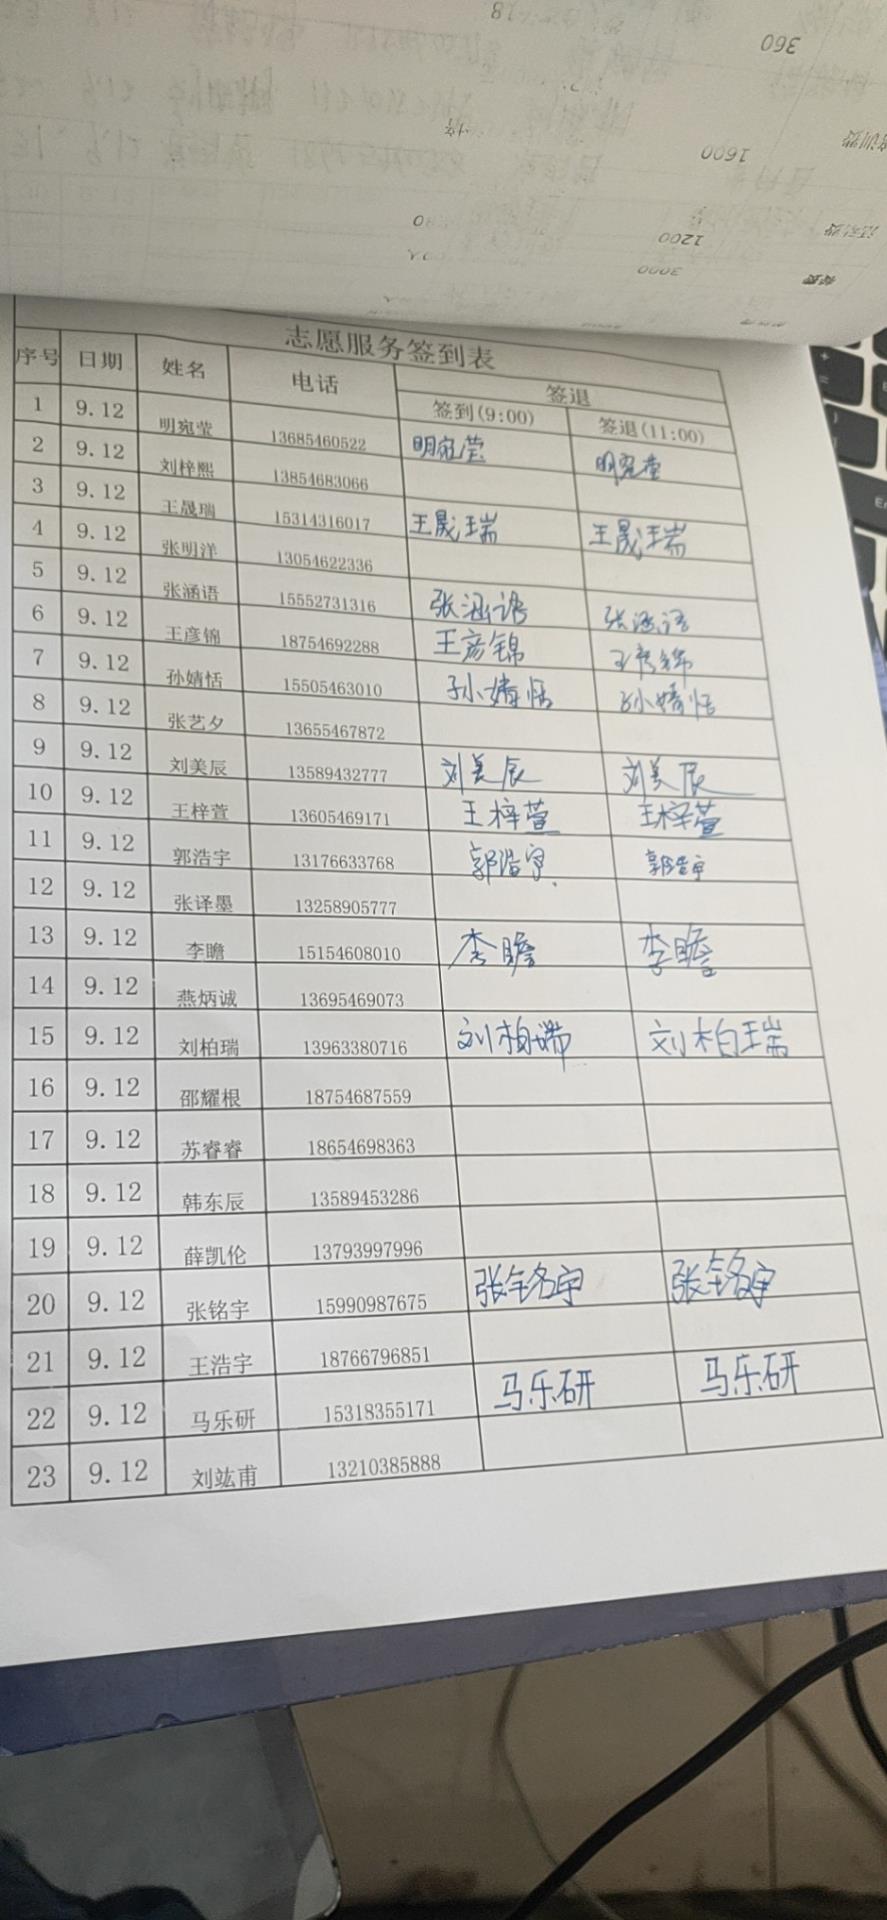 360
1600
1200
3000
志愿服务签到表
序号 日期 姓名 电话 签退
签到(9:00) 签退(11:00)
1 9.12 明宛莹 13685460522 明宛莹 明宛莹
2 9.12 刘梓熙 13854683066
3 9.12 王晟瑞 15314316017 王晟瑞 王晟瑞
4 9.12 张明洋 13054622336
5 9.12 张涵语 15552731316 张涵语 张涵语
6 9.12 王彦锦 18754692288 王彦锦 王彦锦
7 9.12 孙婧恬 15505463010 孙婧恬 孙婧恬
8 9.12 张艺夕 13655467872
9 9.12 刘美辰 13589432777 刘美辰 刘美辰
10 9.12 王梓萱 13605469171 王梓萱 王梓萱
11 9.12 郭浩宇 13176633768 郭浩宇 郭浩宇
12 9.12 张译墨 13258905777
13 9.12 李瞻 15154608010 李瞻 李瞻
14 9.12 燕炳诚 13695469073
15 9.12 刘柏瑞 13963380716 刘柏瑞 刘柏瑞
16 9.12 邵耀根 18754687559
17 9.12 苏睿睿 18654698363
18 9.12 韩东辰 13589453286
19 9.12 薛凯伦 13793997996
20 9.12 张铭宇 15990987675 张铭宇 张铭宇
21 9.12 王浩宇 18766796851
22 9.12 马乐研 15318355171 马乐研 马乐研
23 9.12 刘竑甫 13210385888